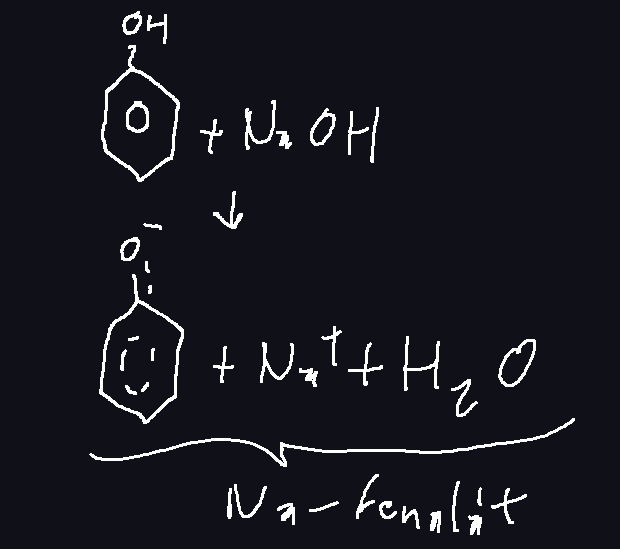 OH
+ NaOH
↓
O⁻
+ Na⁺ + H₂O
Na-fenalát